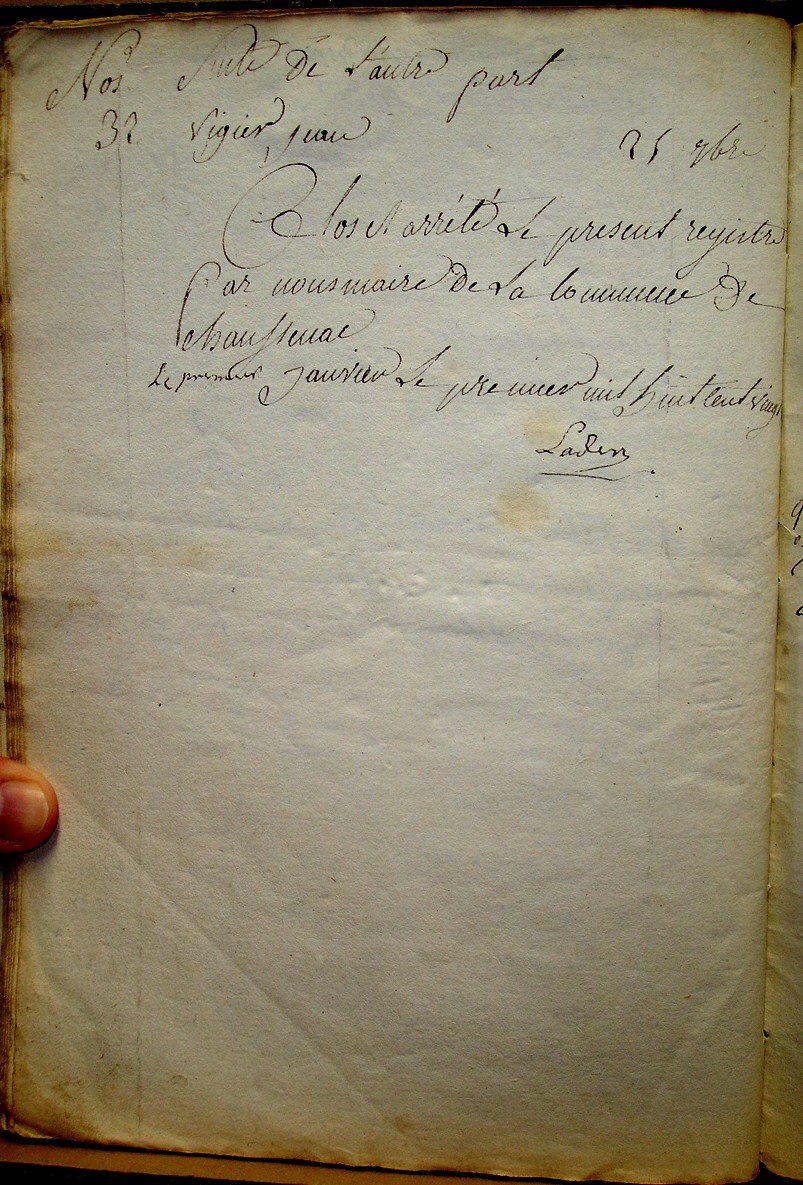 Nos Suite de l'autre part
32 vigier, jean 25 9bre
Clos et arrêté Le present registre
Par nous maire de La Commune De
chaussenac
Le premier janvier Le premier mil huit cent vingt